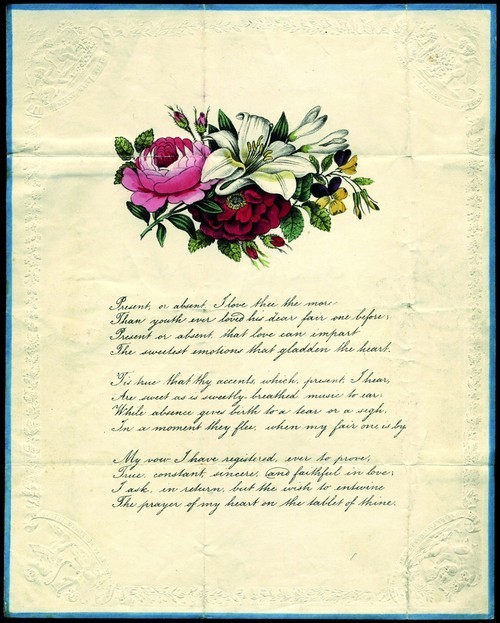 Present, or absent, I love thee the more
Than youth ever loved his dear fair one before;
Present or absent, that love can impart
The sweetest emotions that gladden the heart.
'Tis true that thy accents, which, present, I hear,
Are sweet as is sweetly breathed music to ear;
While absence gives birth to a tear or a sigh,
In a moment they flee, when my fair one is by
My vow I have registered, ever to prove,
True, constant, sincere, and faithful in love;
I ask, in return, but the wish to entwine
The prayer of my heart on the tablet of thine.